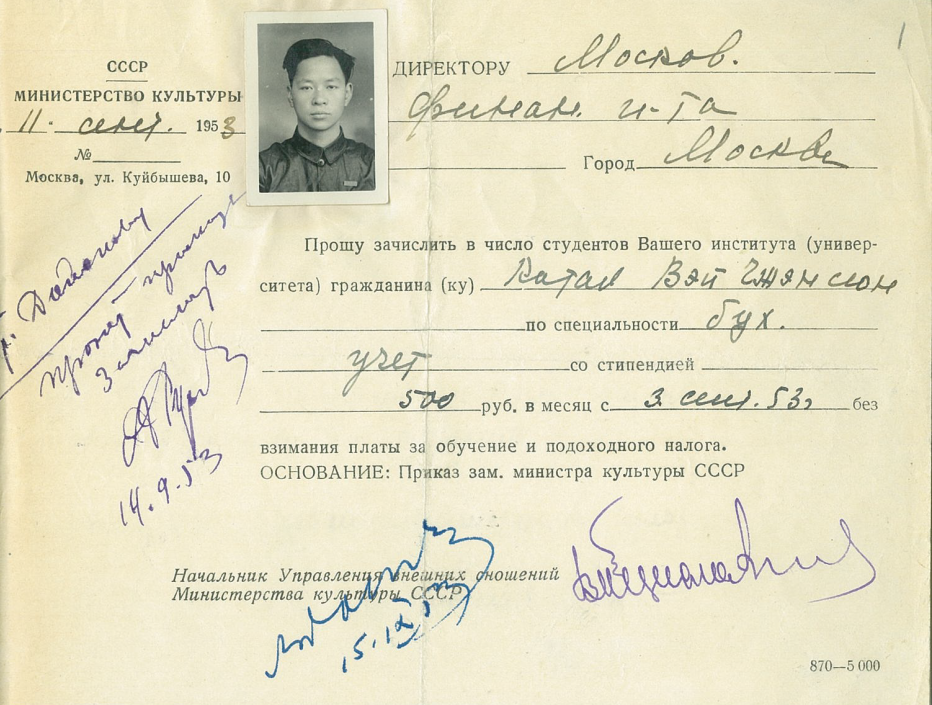 1
СССР
МИНИСТЕРСТВО КУЛЬТУРЫ
11. сент. 1953
№
Москва, ул. Куйбышева, 10
ДИРЕКТОРУ Москов.
финан. и-та
Город Москве
Прошу зачислить в число студентов Вашего института (универ-
ситета) гражданина (ку) Вэй
по специальности бух.
учет со стипендией
500 руб. в месяц с 3. сент. 53г без
взимания платы за обучение и подоходного налога.
ОСНОВАНИЕ: Приказ зам. министра культуры СССР
14.9.53
Начальник Управления внешних сношений
Министерства культуры СССР
15.IX
870—5 000